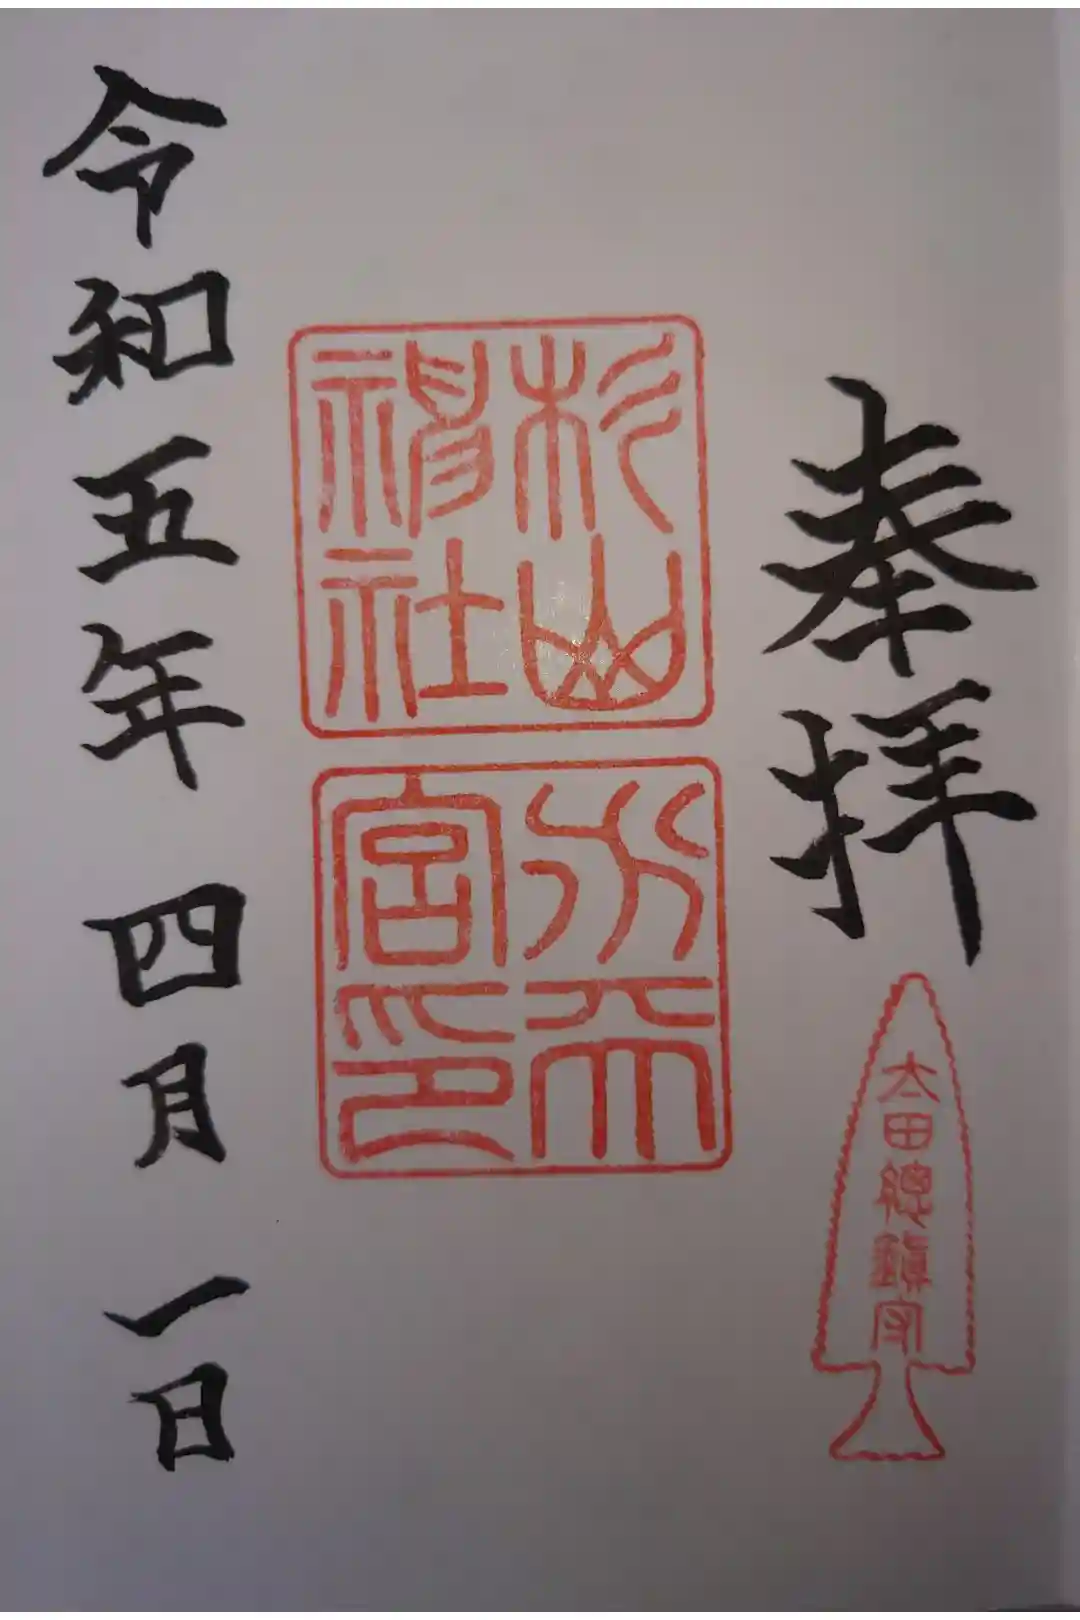 奉拝
太田總鎮守
杉山
神社
水天
宮印
令和五年 四月 一日